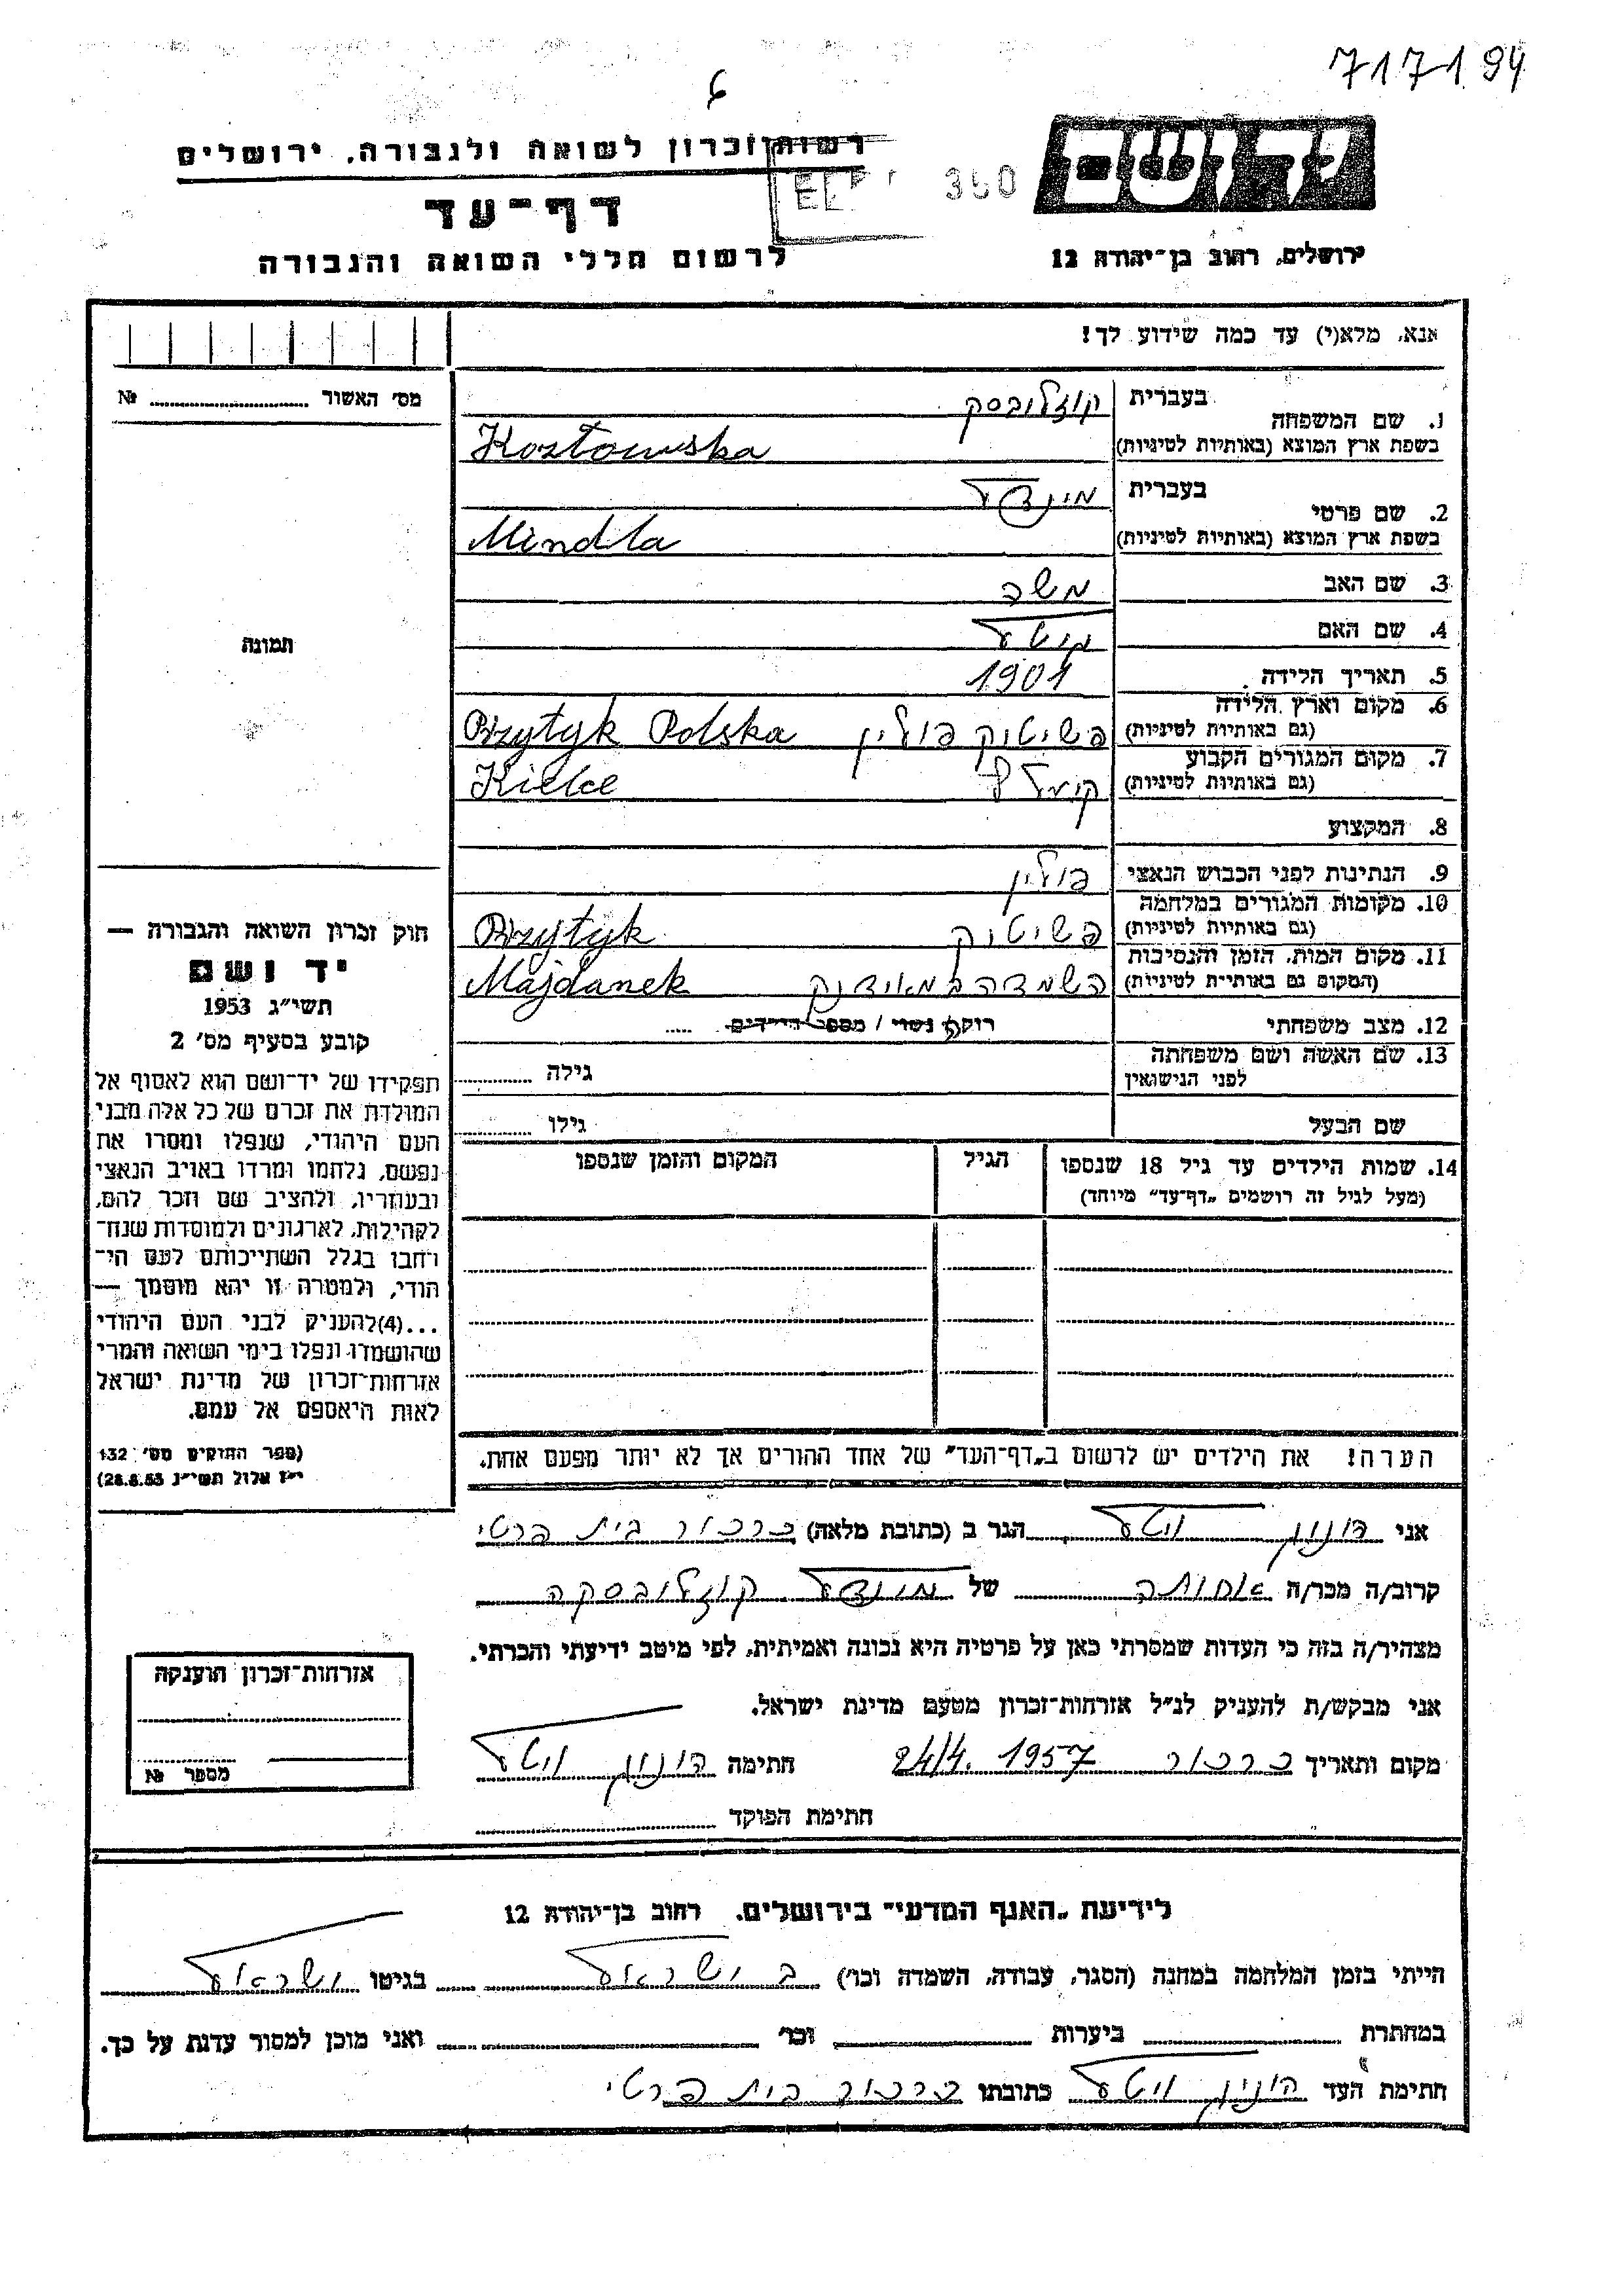 717194
6
רשות זכרון לשואה ולגבורה, ירושלים
יד ושם
דף־עד
לרשום חללי השואה והגבורה
ירושלים, רחוב בן־יהודה 12
אנא, מלא(י) עד כמה שידוע לך!
מס׳ האשור № 
1. שם המשפחה בעברית קוזלובסק
בשפת ארץ המוצא (באותיות לטיניות) Kozłowska
2. שם פרטי בעברית
בשפת ארץ המוצא (באותיות לטיניות) Mindla
3. שם האב משה
4. שם האם
5. תאריך הלידה 1901
6. מקום וארץ הלידה (גם באותיות לטיניות) פשיטוק פולין Przytyk Polska
7. מקום המגורים הקבוע (גם באותיות לטיניות) Kielce
8. המקצוע
9. הנתינות לפני הכבוש הנאצי פולין
10. מקומות המגורים במלחמה (גם באותיות לטיניות) פשיטוק Przytyk
11. מקום המות, הזמן והנסיבות (המקום גם באותיות לטיניות) השמדה במאידנק Majdanek
12. מצב משפחתי רוקה נשוי / מספר הילדים
13. שם האשה ושם משפחתה לפני הנישואין גילה
שם הבעל גילו
14. שמות הילדים עד גיל 18 שנספו הגיל המקום והזמן שנספו
(מעל לגיל זה רושמים „דף־עד” מיוחד)
הערה! את הילדים יש לרשום ב„דף־העד” של אחד ההורים אך לא יותר מפעם אחת.
תמונה
חוק זכרון השואה והגבורה —
יד ושם
תשי״ג 1953
קובע בסעיף מס׳ 2
תפקידו של יד־ושם הוא לאסוף אל
המולדת את זכרם של כל אלה מבני
העם היהודי, שנפלו ומסרו את
נפשם, נלחמו ומרדו באויב הנאצי
ובעוזריו, ולהציב שם וזכר להם,
לקהילות, לארגונים ולמוסדות שנח־
רחבו בגלל השתייכותם לעם הי־
הודי, ולמטרה זו יהא מוסמך —
...(4)להעניק לבני העם היהודי
שהושמדו ונפלו בימי השואה והמרי
אזרחות־זכרון של מדינת ישראל
לאות היאספם אל עמם.
(ספר החוקים מס׳ 132
י״ז אלול תשי״ג 28.8.53)
אני הגר ב (כתובת מלאה) כרכור בית פרטי
קרוב/ה מכר/ה אחותה של קוזלובסקה
מצהיר/ה בזה כי העדות שמסרתי כאן על פרטיה היא נכונה ואמיתית, לפי מיטב ידיעתי והכרתי.
אני מבקש/ת להעניק לנ״ל אזרחות־זכרון מטעם מדינת ישראל.
מקום ותאריך כרכור 24/4. 1957 חתימה
חתימת הפוקד
אזרחות־זכרון הוענקה
מספר №
לידיעת „האגף המדעי” בירושלים. רחוב בן־יהודה 12
הייתי בזמן המלחמה במחנה (הסגר, עבודה, השמדה וכו׳) בישראל בגיטו ישראל
במחתרת ביערות וכו׳ ואני מוכן למסור עדות על כך.
חתימת העד כתובתו כרכור בית פרטי